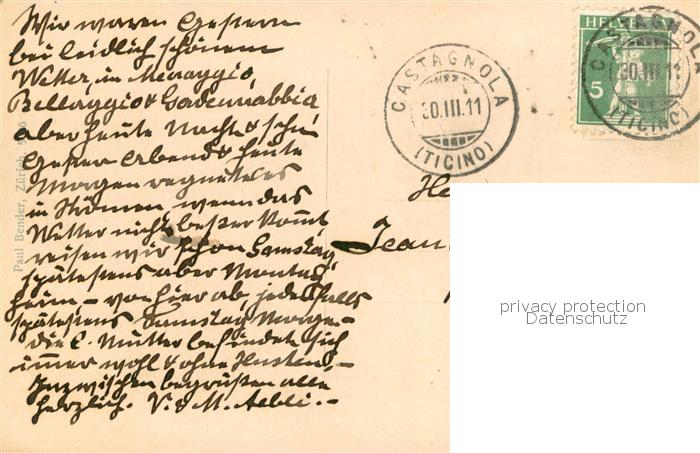 Wir waren Gestern
bei leidlich schönem
Wetter, in Menaggio,
Bellaggio & Cadennabbia
aber heute Nacht & schon
Gestern Abend & heute
Morgen regnete es
in Strömen, wenn das
Wetter nicht besser kommt
reisen wir schon Samstag,
spätestens aber Montag
heim – von hier ab, jedenfalls
spätestens Samstag Morgen –
die l. Mutter befindet sich
immer wohl & ohne Husten, –
Inzwischen begrüssen alle
herzlich. V. & M. Aebli. –
Paul Bender, Zürich
CASTAGNOLA
30.III.11
(TICINO)
HELVE
5
CASTAGNOLA
30.III.11
(TICINO)
He
Jean
privacy protection
Datenschutz